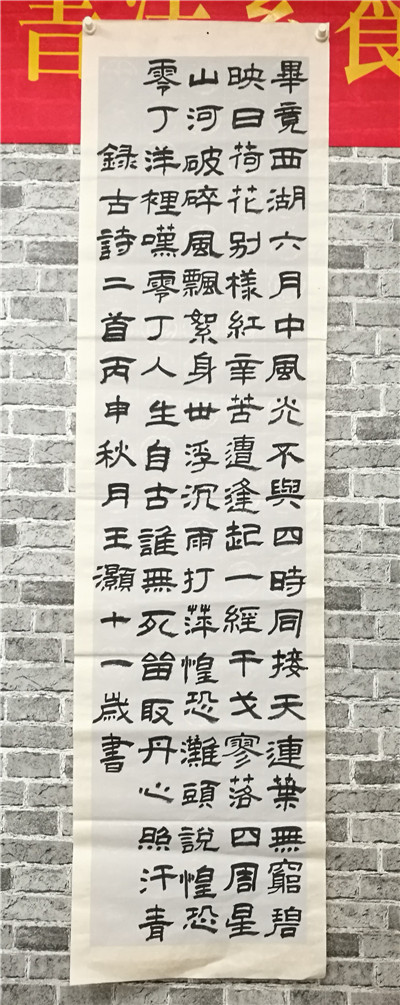 書法
畢竟西湖六月中風光不與四時同接天連葉無窮碧
映日荷花别樣紅辛苦遭逢起一經干戈寥落四周星
山河破碎風飄絮身世浮沉雨打萍惶恐灘頭說惶恐
零丁洋裡嘆零丁人生自古誰無死留取丹心照汗青
錄古詩二首丙申秋月王灝十一歲書